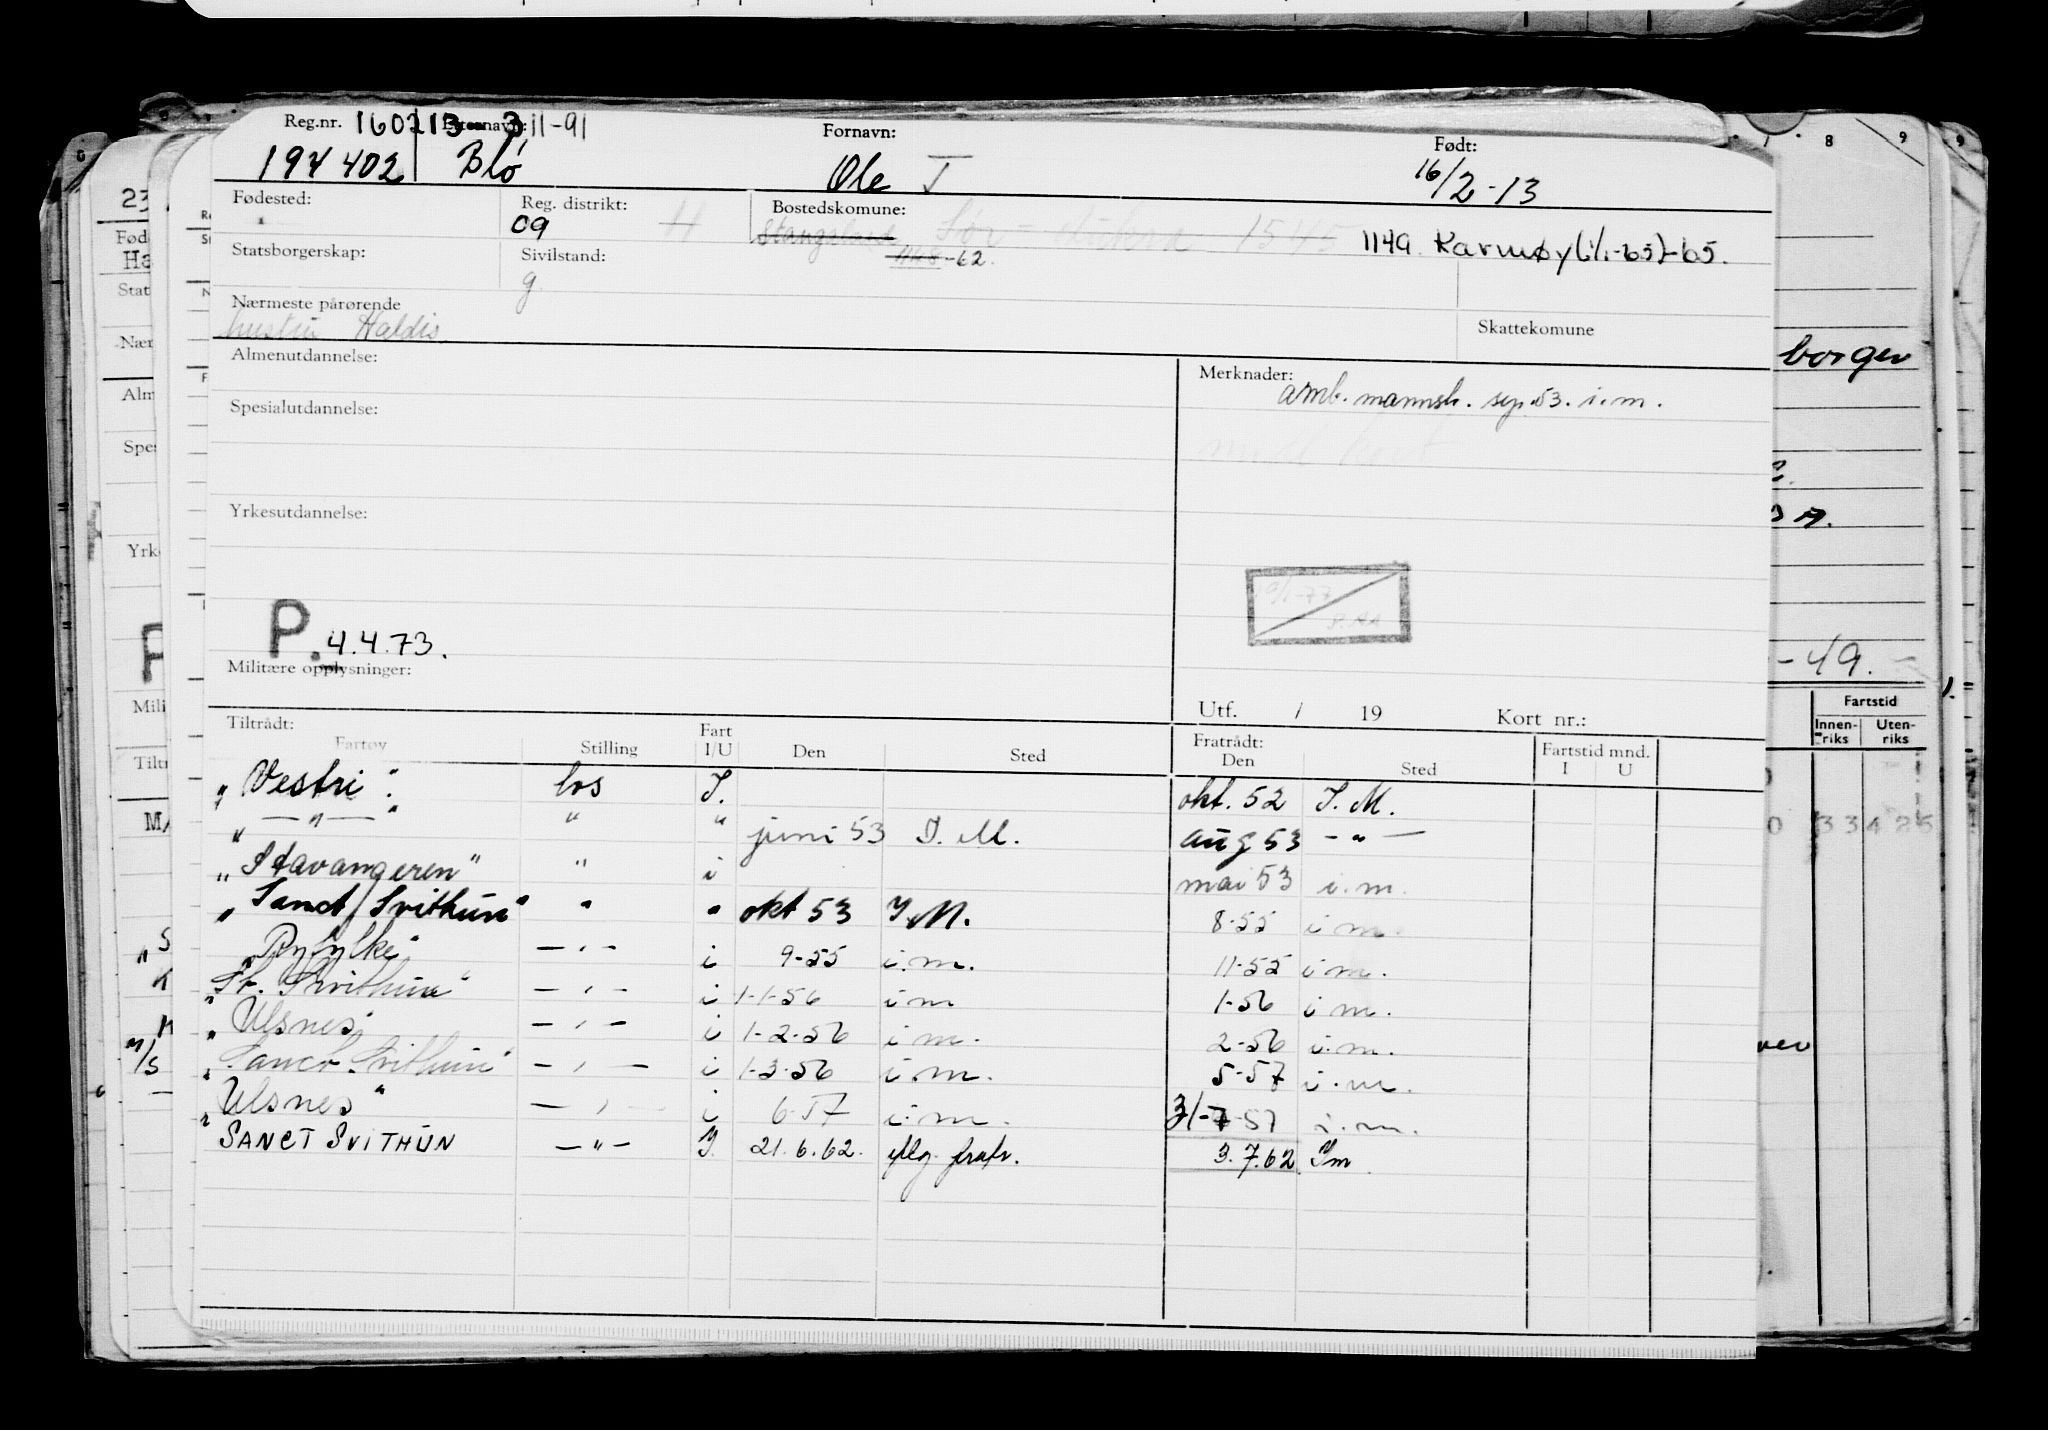 Reg.nr. 160213 Etternavn: 311-91 Fornavn: Født:
194402 Blø Ole T 16/2-13
Fødested: Reg. distrikt: H Bostedskomune:
09 Stangaland Sør- 1149 Karmøy (1/1-65)-65.
Statsborgerskap: Sivilstand: -62.
g.
Nærmeste pårørende
hustru Haldis Skattekomune
Almenutdannelse: Merknader:
amb. mannsk. sep. 53. i.m.
Spesialutdannelse:
Yrkesutdannelse:
P. 4.4.73.
Militære opplysninger:
Utf. / 19 Kort nr.:
Tiltrådt: Fart Fratrådt: Fartstid mnd.
Fartøy Stilling I/U Den Sted Den Sted I U
"Vestri". los I. okt. 52 I.M.
" —"— " " " juni 53 I.M. aug 53 -"-
"Stavangeren" " i mai 53 i.m.
"Sanct Svithun" " " okt 53 I.M. 8-55 i.m.
"Ryfylke" -"- i 9-55 i.m. 11-55 i.m.
"St. Svithun" -"- i 1-1-56 i m 1-56 i m.
"Ulsnes" -"- i 1-2-56 i m. 2-56 i.m.
"Sanct Svithun" -"- i 1-3-56 i.m. 5-57 i.m.
"Ulsnes" -"- i 6-57 i.m. 31-7-57 i.m.
SANCT SVITHUN -"- I 21.6.62. 3.7.62. Im
borger
-49.-
Fartstid
Innen-riks Uten-riks